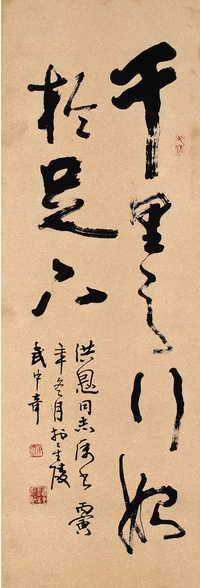 千里之行始
於足下
洪恩同志属书 丙寅
年冬月于金陵
武中奇